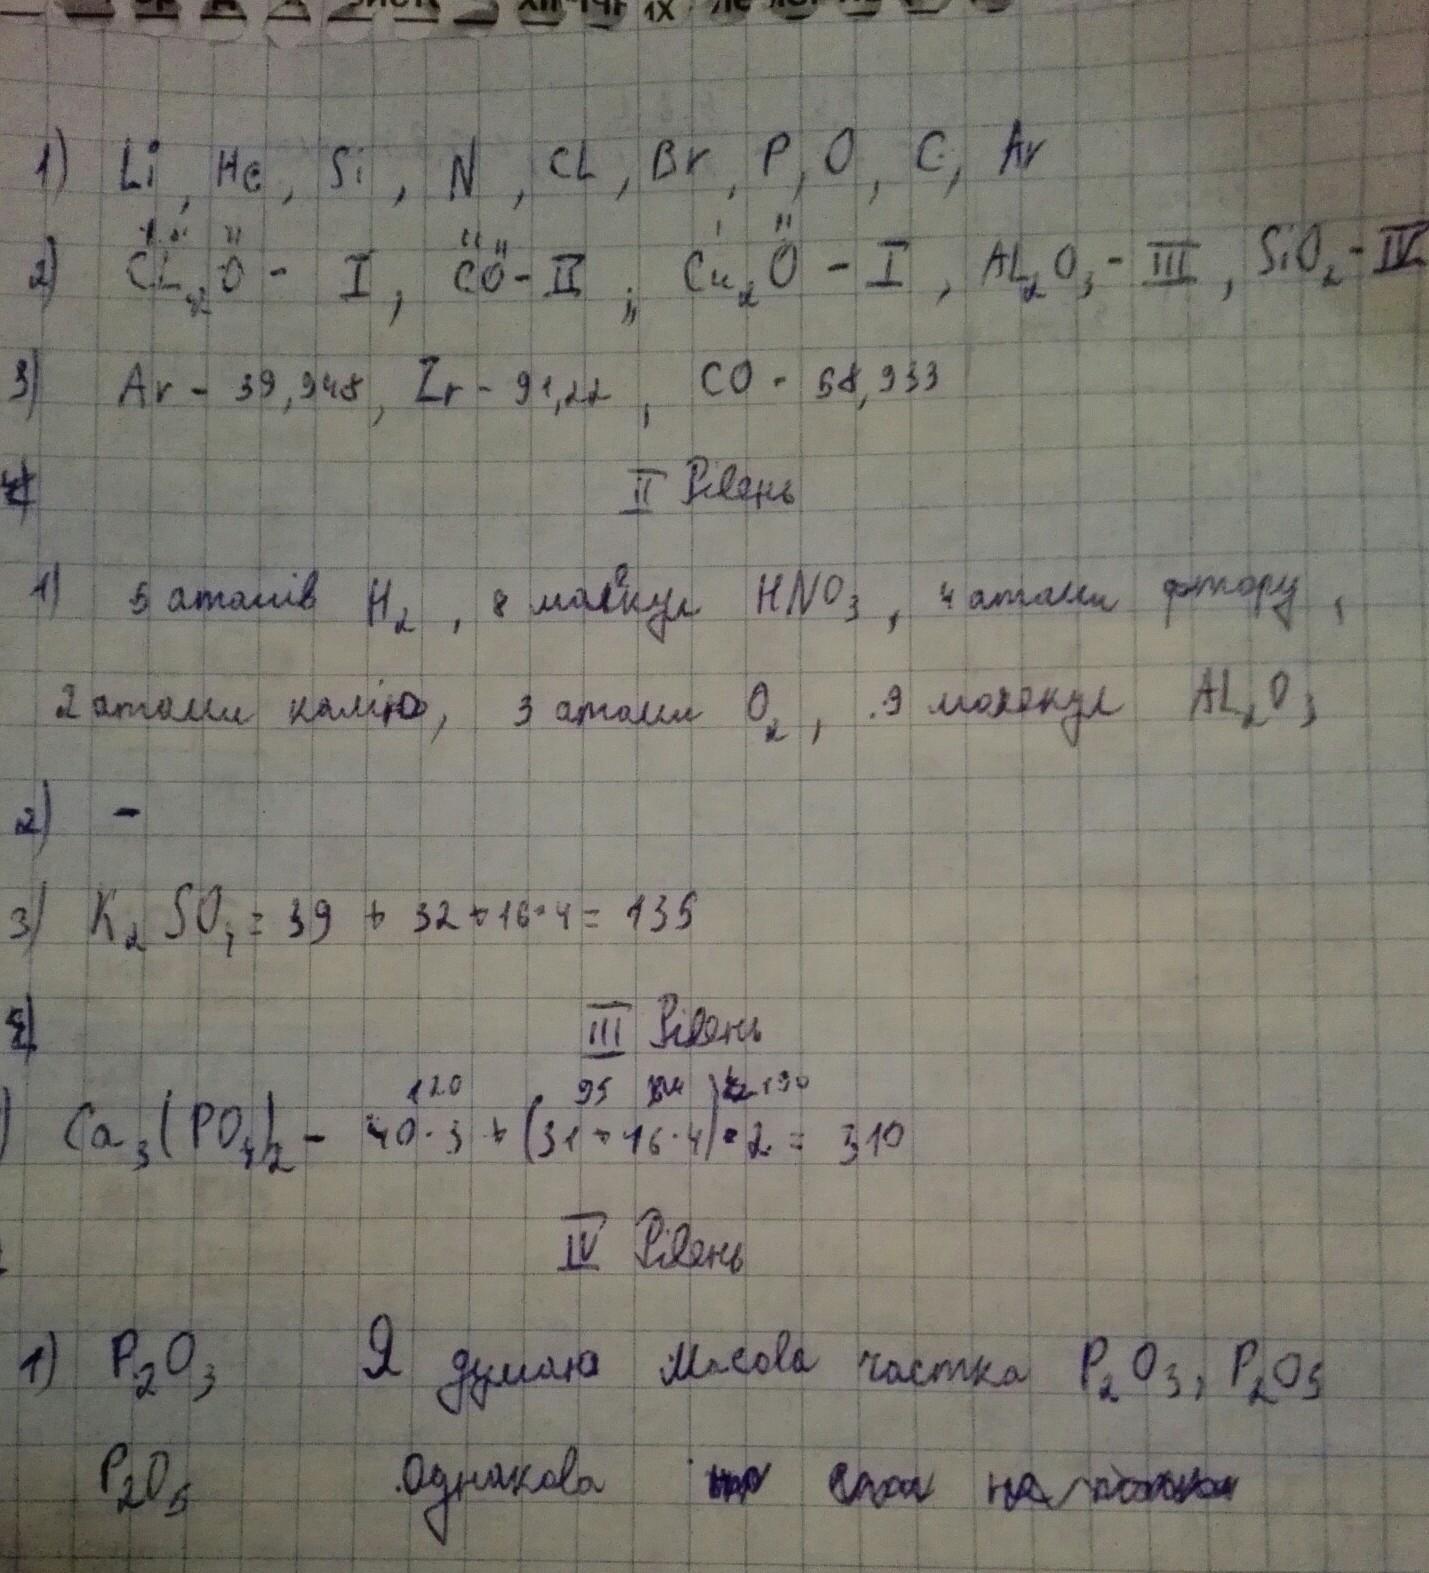 1) Li, He, Si, N, CL, Br, P, O, C, Ar
2) CL₂O - I, CO - II, Cu₂O - I, AL₂O₃ - III, SiO₂ - IV
3) Ar - 39,948, Zr - 91,22, CO - 58,933
II Рівень
1) 5 атомів H₂, 8 молекул HNO₃, 4 атоми фтору,
2 атоми калію, 3 атоми O₂, 9 молекул AL₂O₃
2) -
3) K₂SO₄ = 39 + 32 + 16·4 = 135
III Рівень
120 95 190
) Ca₃(PO₄)₂ - 40·3 + (31 + 16·4)·2 = 310
IV Рівень
1) P₂O₃ Я думаю масова частка P₂O₃, P₂O5
P₂O₅ однакова